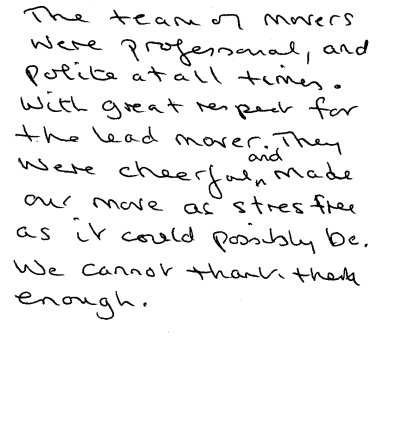 The team of movers
were professional, and
polite at all times.
With great respect for
the lead mover. They
were cheerful and made
our move as stres free
as it could possibly be.
We cannot thank them
enough.